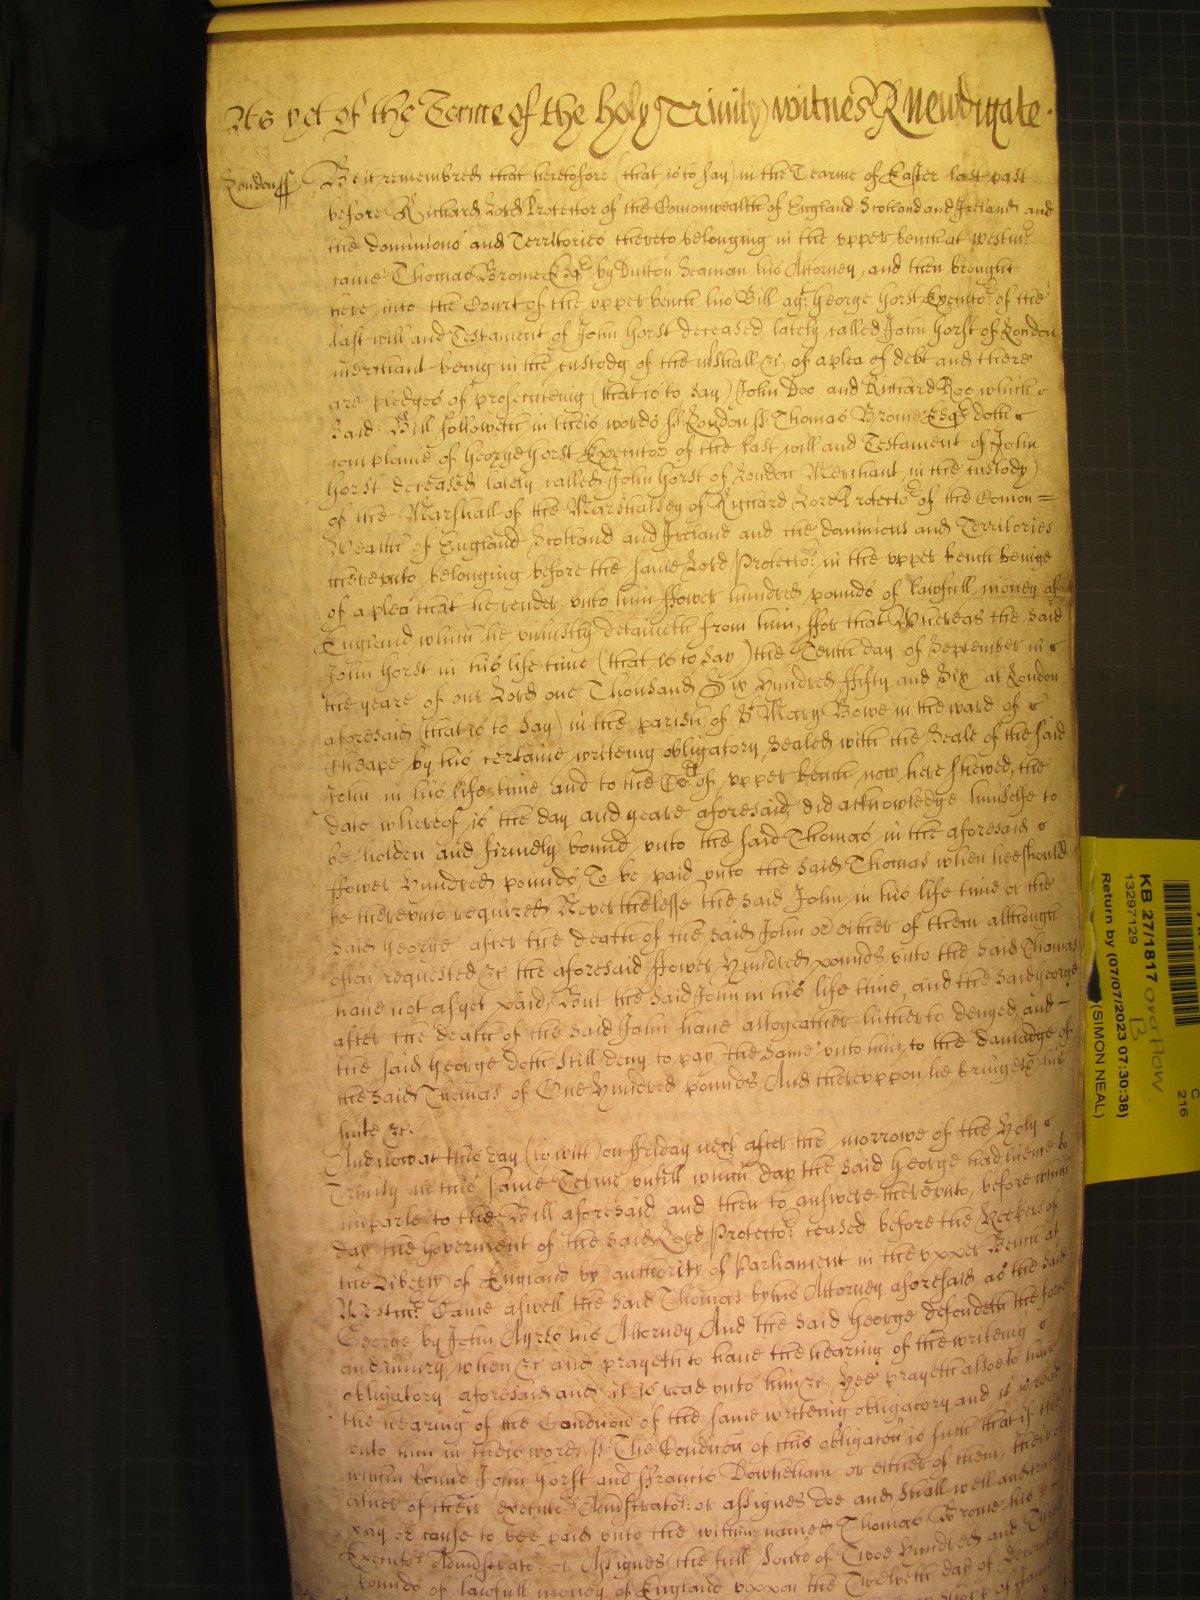 As yet of the Terme of the holy Trinity witnes R Newdigate.
London ss Be it remembred that heretofore (that is to say) in the Tearme of Easter last past
before Richard Lord Protector of the Comonwealth of England Scotland and Ireland and
the dominions and Territories thereto belonging in the upper bench at Westmr
came Thomas Brome Esqr by Dutton Seaman his Attorney, and then brought
here into the Court of the upper bench his Bill agt George Horst Executor of the
last will and Testament of John Horst deceased lately called John Horst of London
merchant being in the custody of the mshall &c of a plea of debt and there
are pledges of prosecuteing (that is to say) John Doo and Richard Roo which
said Bill followeth in theis words ss London ss Thomas Brome Esqr doth
complaine of George Horst Executor of the last will and Testament of John
Horst deceased lately called John Horst of London Merchant in the custody
of the Marshall of the Marshalsey of Richard Lord Protector of the Comon=
Wealth of England Scotland and Ireland and the dominions and Territories
thereunto belonging before the same Lord Protector in the upper bench beinge
of a plea that he render unto him ffower hundred pounds of lawfull money of
England which he uniustly detaineth from him, ffor that Whereas the said
John Horst in his life time (that is to say) the Tenth day of September in
the yeare of our Lord one Thousand Six Hundred ffifty and Six at London
aforesaid (that is to say) in the parish of St Mary Bowe in the ward of
Cheape by his certaine writeing obligatory Sealed with the Seale of the said
John in his life time and to the Cort of upper bench now here shewed, the
date whereof is the day and yeare aforesaid, did acknowledge himselfe to
be holden and firmely bound unto the said Thomas in the aforesaid
ffower Hundred pounds To be paid unto the said Thomas when hee should
be thereunto required Neverthelesse the said John in his life time or the
said George after the death of the said John or either of them although
often requested &c the aforesaid ffower Hundred pounds unto the said Thomas
have not as yet paid, But the said John in his life time, and the said George
after the death of the said John have altogeather hitherto denyed, and
the said George doth still deny to pay the same unto him, to the damadge of
the said Thomas of One Hundred pounds And thereuppon he bringeth his
suite &c.
And now at this day (to witt) on ffriday next after the morrowe of the Holy
Trinity in this same Terme untill which day the said George had licence to
imparle to the Bill aforesaid and then to answere thereunto, before which
day the Goverment of the said Lord Protector ceased before the Keepers of
the Liberty of England by authority of Parliament in the upper Bench at
Westmr Came aswell the said Thomas by his Attorney aforesaid as the said
George by John Ayres his Attorney And the said George defendeth the force
and iniury when &c and prayeth to have the hearing of the writeing
obligatory aforesaid and it is read unto him &c. Hee prayeth alsoe to have
the hearing of the Condicion of the same writeing obligatory and it is read
unto him in theis words ss. The Condicion of this obligacon is such that if the
within bound John Horst and ffrancis Downeham or either of them, their or
either of their executors Adminstrators or assignes doe and shall well and truly
pay or cause to bee paid unto the within named Thomas Brome his
Executors Adminstrators or Assignes the full Some of Twoe Hundred and
Pounds of lawfull money of England uppon the Twelveth day of December
KB 27/1817 overflow
13297129 B
Return by (07/07/2023 07:30:38)
(SIMON NEAL)
C
216